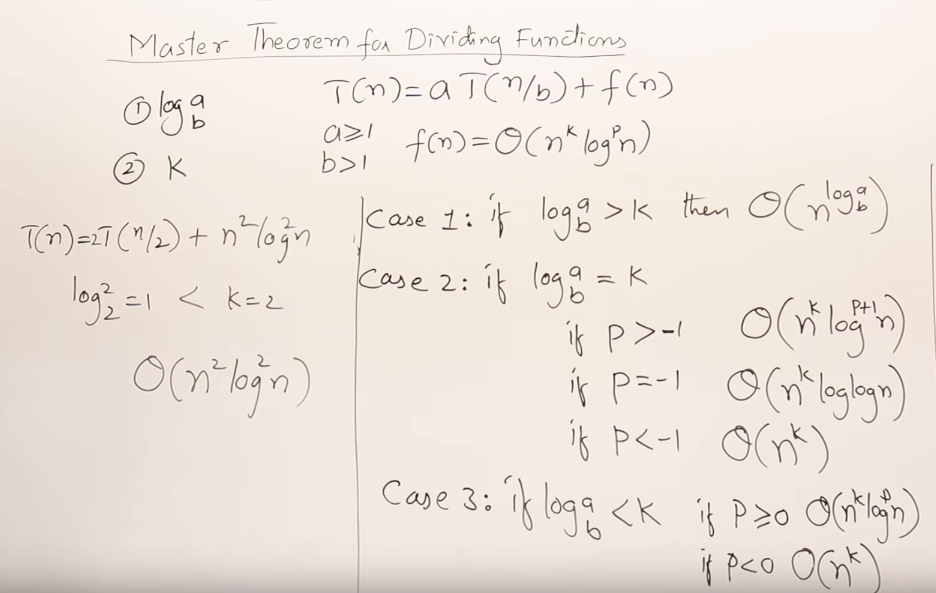 Master Theorem for Dividing Functions
① log_b^a
② K
T(n)=aT(n/b)+f(n)
a≥1
b>1
f(n)=O(n^k log^p n)
T(n)=2T(n/2)+n^2 log^2 n
log_2^2=1 < k=2
O(n^2 log^2 n)
Case 1: if log_b^a >k then O(n^{log_b^a})
Case 2: if log_b^a = k
if P>-1 O(n^k log^{p+1} n)
if P=-1 O(n^k loglogn)
if P<-1 O(n^k)
Case 3: if log_b^a <k if P≥0 O(n^k log^p n)
if p<0 O(n^k)